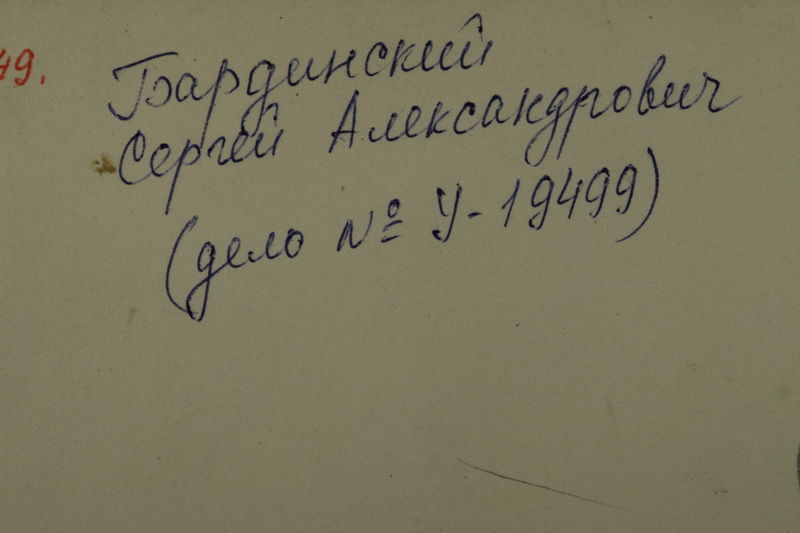 49.
Бардинский
Сергей Александрович
(дело № У-19499)